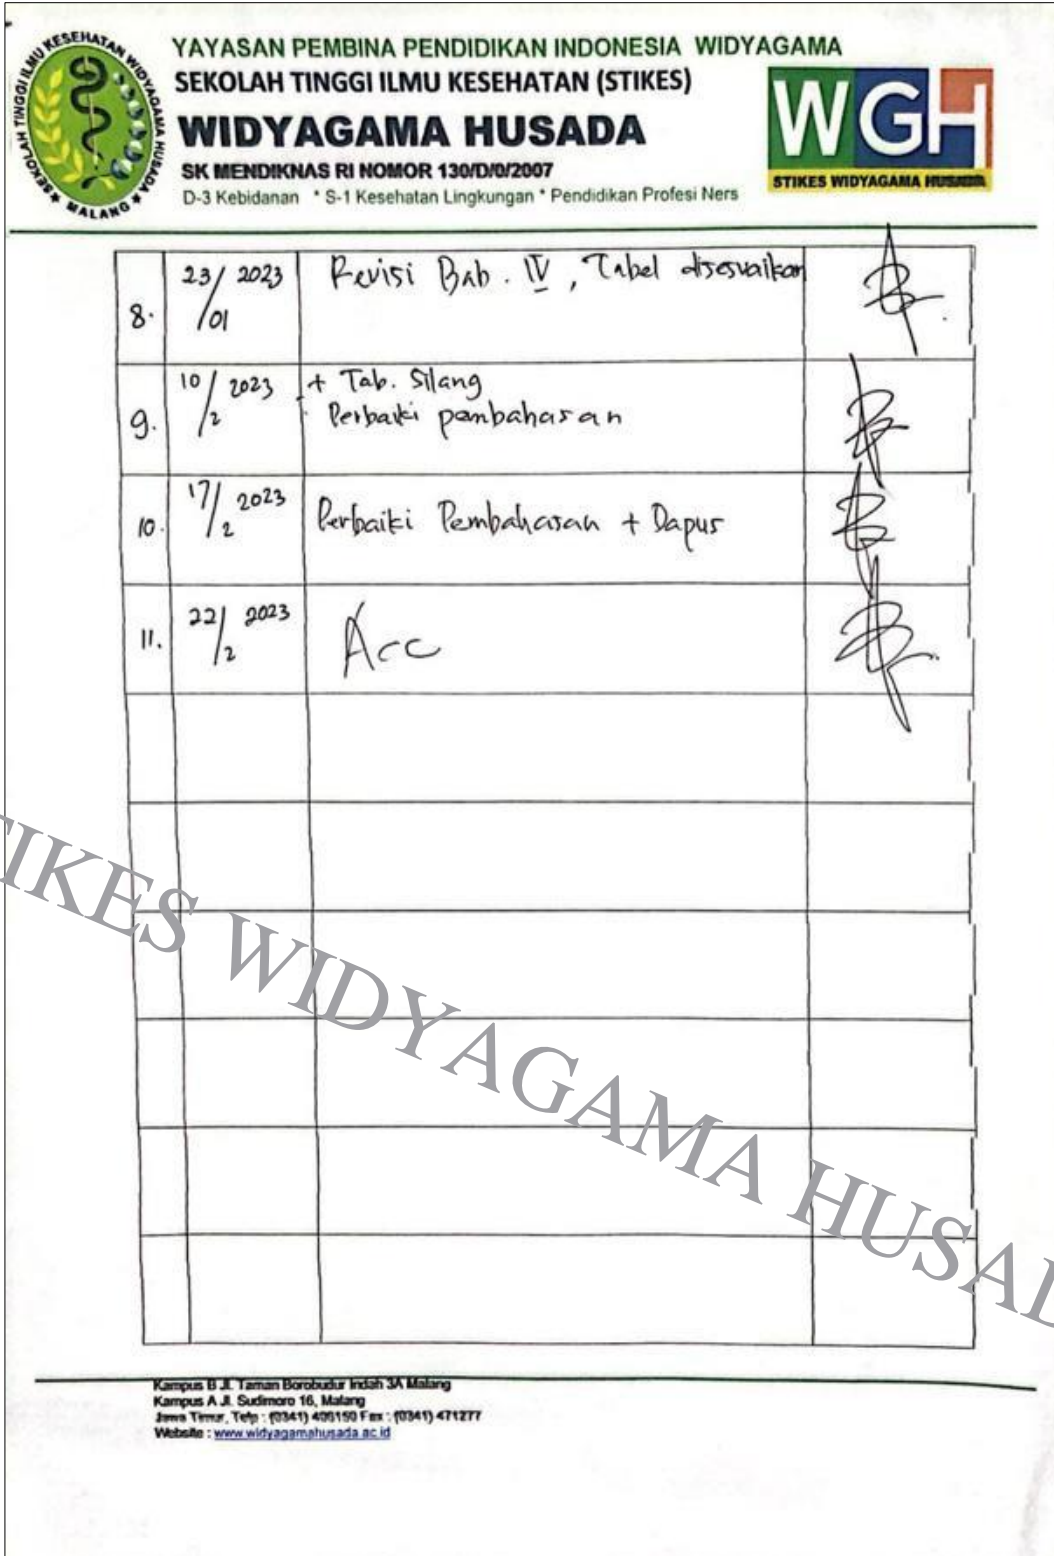 SEKOLAH TINGGI ILMU KESEHATAN WIDYAGAMA HUSADA
* MALANG *
YAYASAN PEMBINA PENDIDIKAN INDONESIA WIDYAGAMA
SEKOLAH TINGGI ILMU KESEHATAN (STIKES)
WIDYAGAMA HUSADA
SK MENDIKNAS RI NOMOR 130/D/0/2007
D-3 Kebidanan * S-1 Kesehatan Lingkungan * Pendidikan Profesi Ners
WGH
STIKES WIDYAGAMA HUSADA
8. 23/01 2023 Revisi Bab. IV, Tabel disesuaikan
9. 10/2 2023 + Tab. Silang
Perbaiki pembahasan
10. 17/2 2023 Perbaiki Pembahasan + Dapus
11. 22/2 2023 Acc
TIKES WIDYAGAMA HUSAD
Kampus B Jl. Taman Borobudur Indah 3A Malang
Kampus A Jl. Sudimoro 16, Malang
Jawa Timur, Telp : (0341) 406150 Fax : (0341) 471277
Website : www.widyagamahusada.ac.id